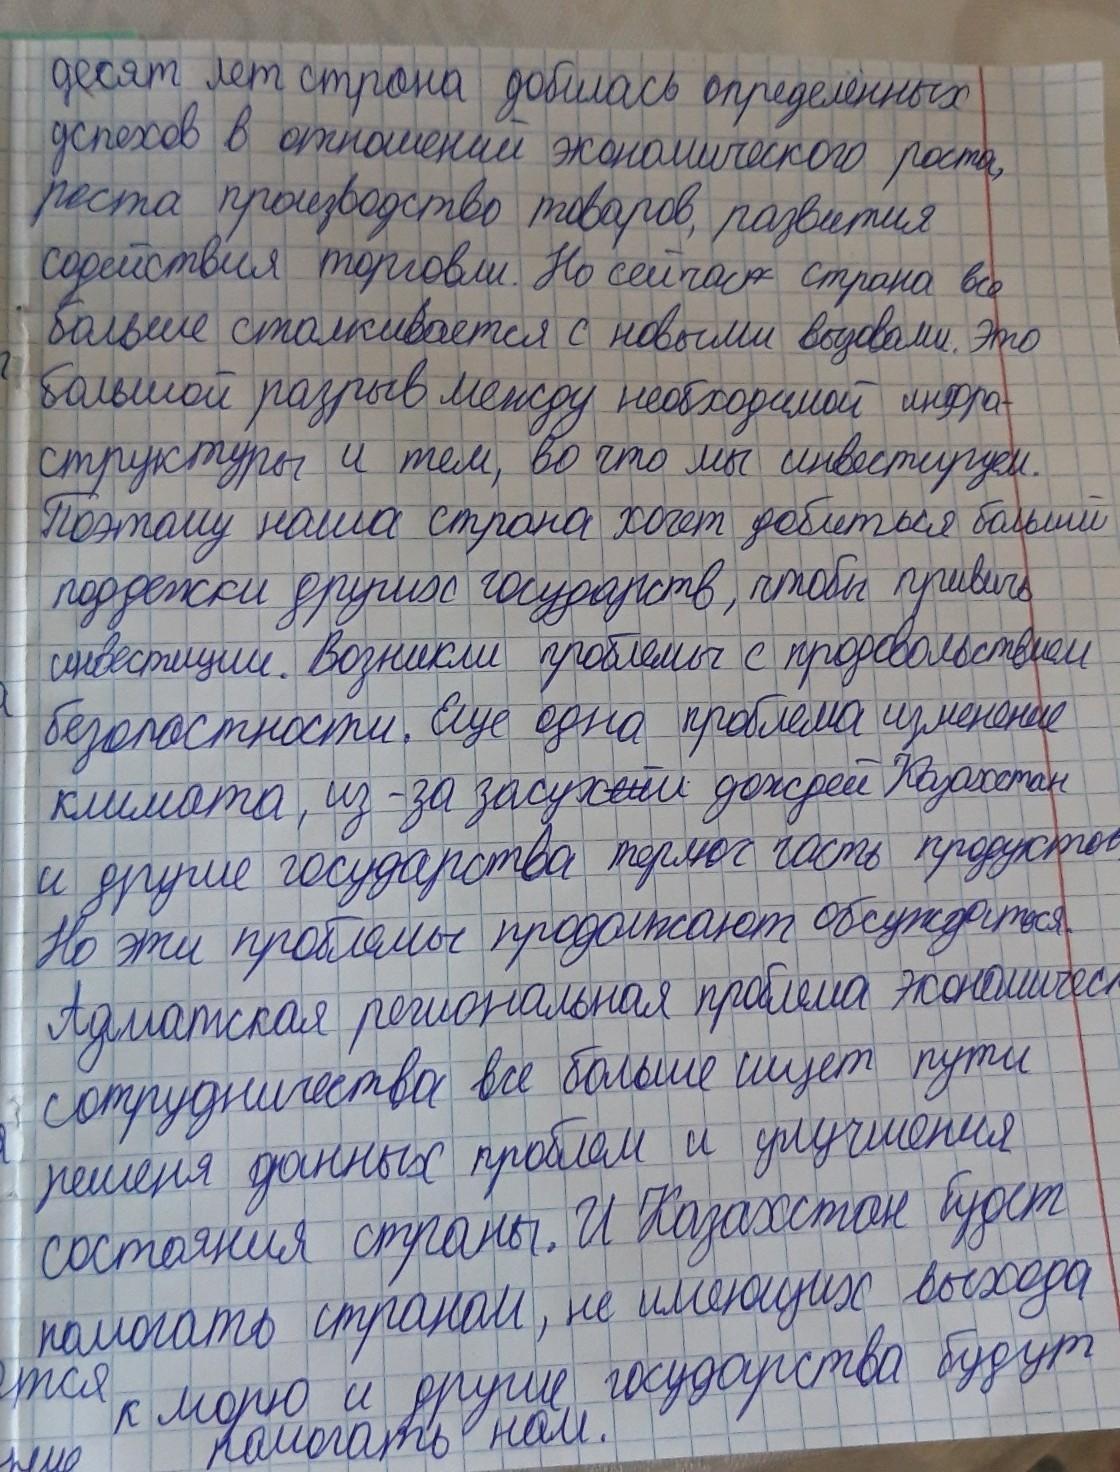 десят лет страна добилась определенных
успехов в отношений экономического роста,
роста производство товаров, развития
содействия торговли. Но сейчас страна все
больше сталкивается с новыми вызовами. Это
большой разрыв между необходимой инфра-
структуры и тем, во что мы инвестируем.
Поэтому наша страна хочет добиться больший
поддежки других государств, чтобы привичь
инвестиции. Возникли проблемы с продовольствием
безопастности. Еще одна проблема изменение
климата, из-за засух и дождей Казахстан
и другие государства теряют часть продуктов
Но эти проблемы продолжают обсуждаться.
Адматская региональная проблема экономическ
сотрудничества все больше ищет пути
решеня данных проблем и улучшения
состояния страны. И Казахстан будет
помогать странам, не имеющих выхода
ется к морю и другие государства будут
помогать нам.